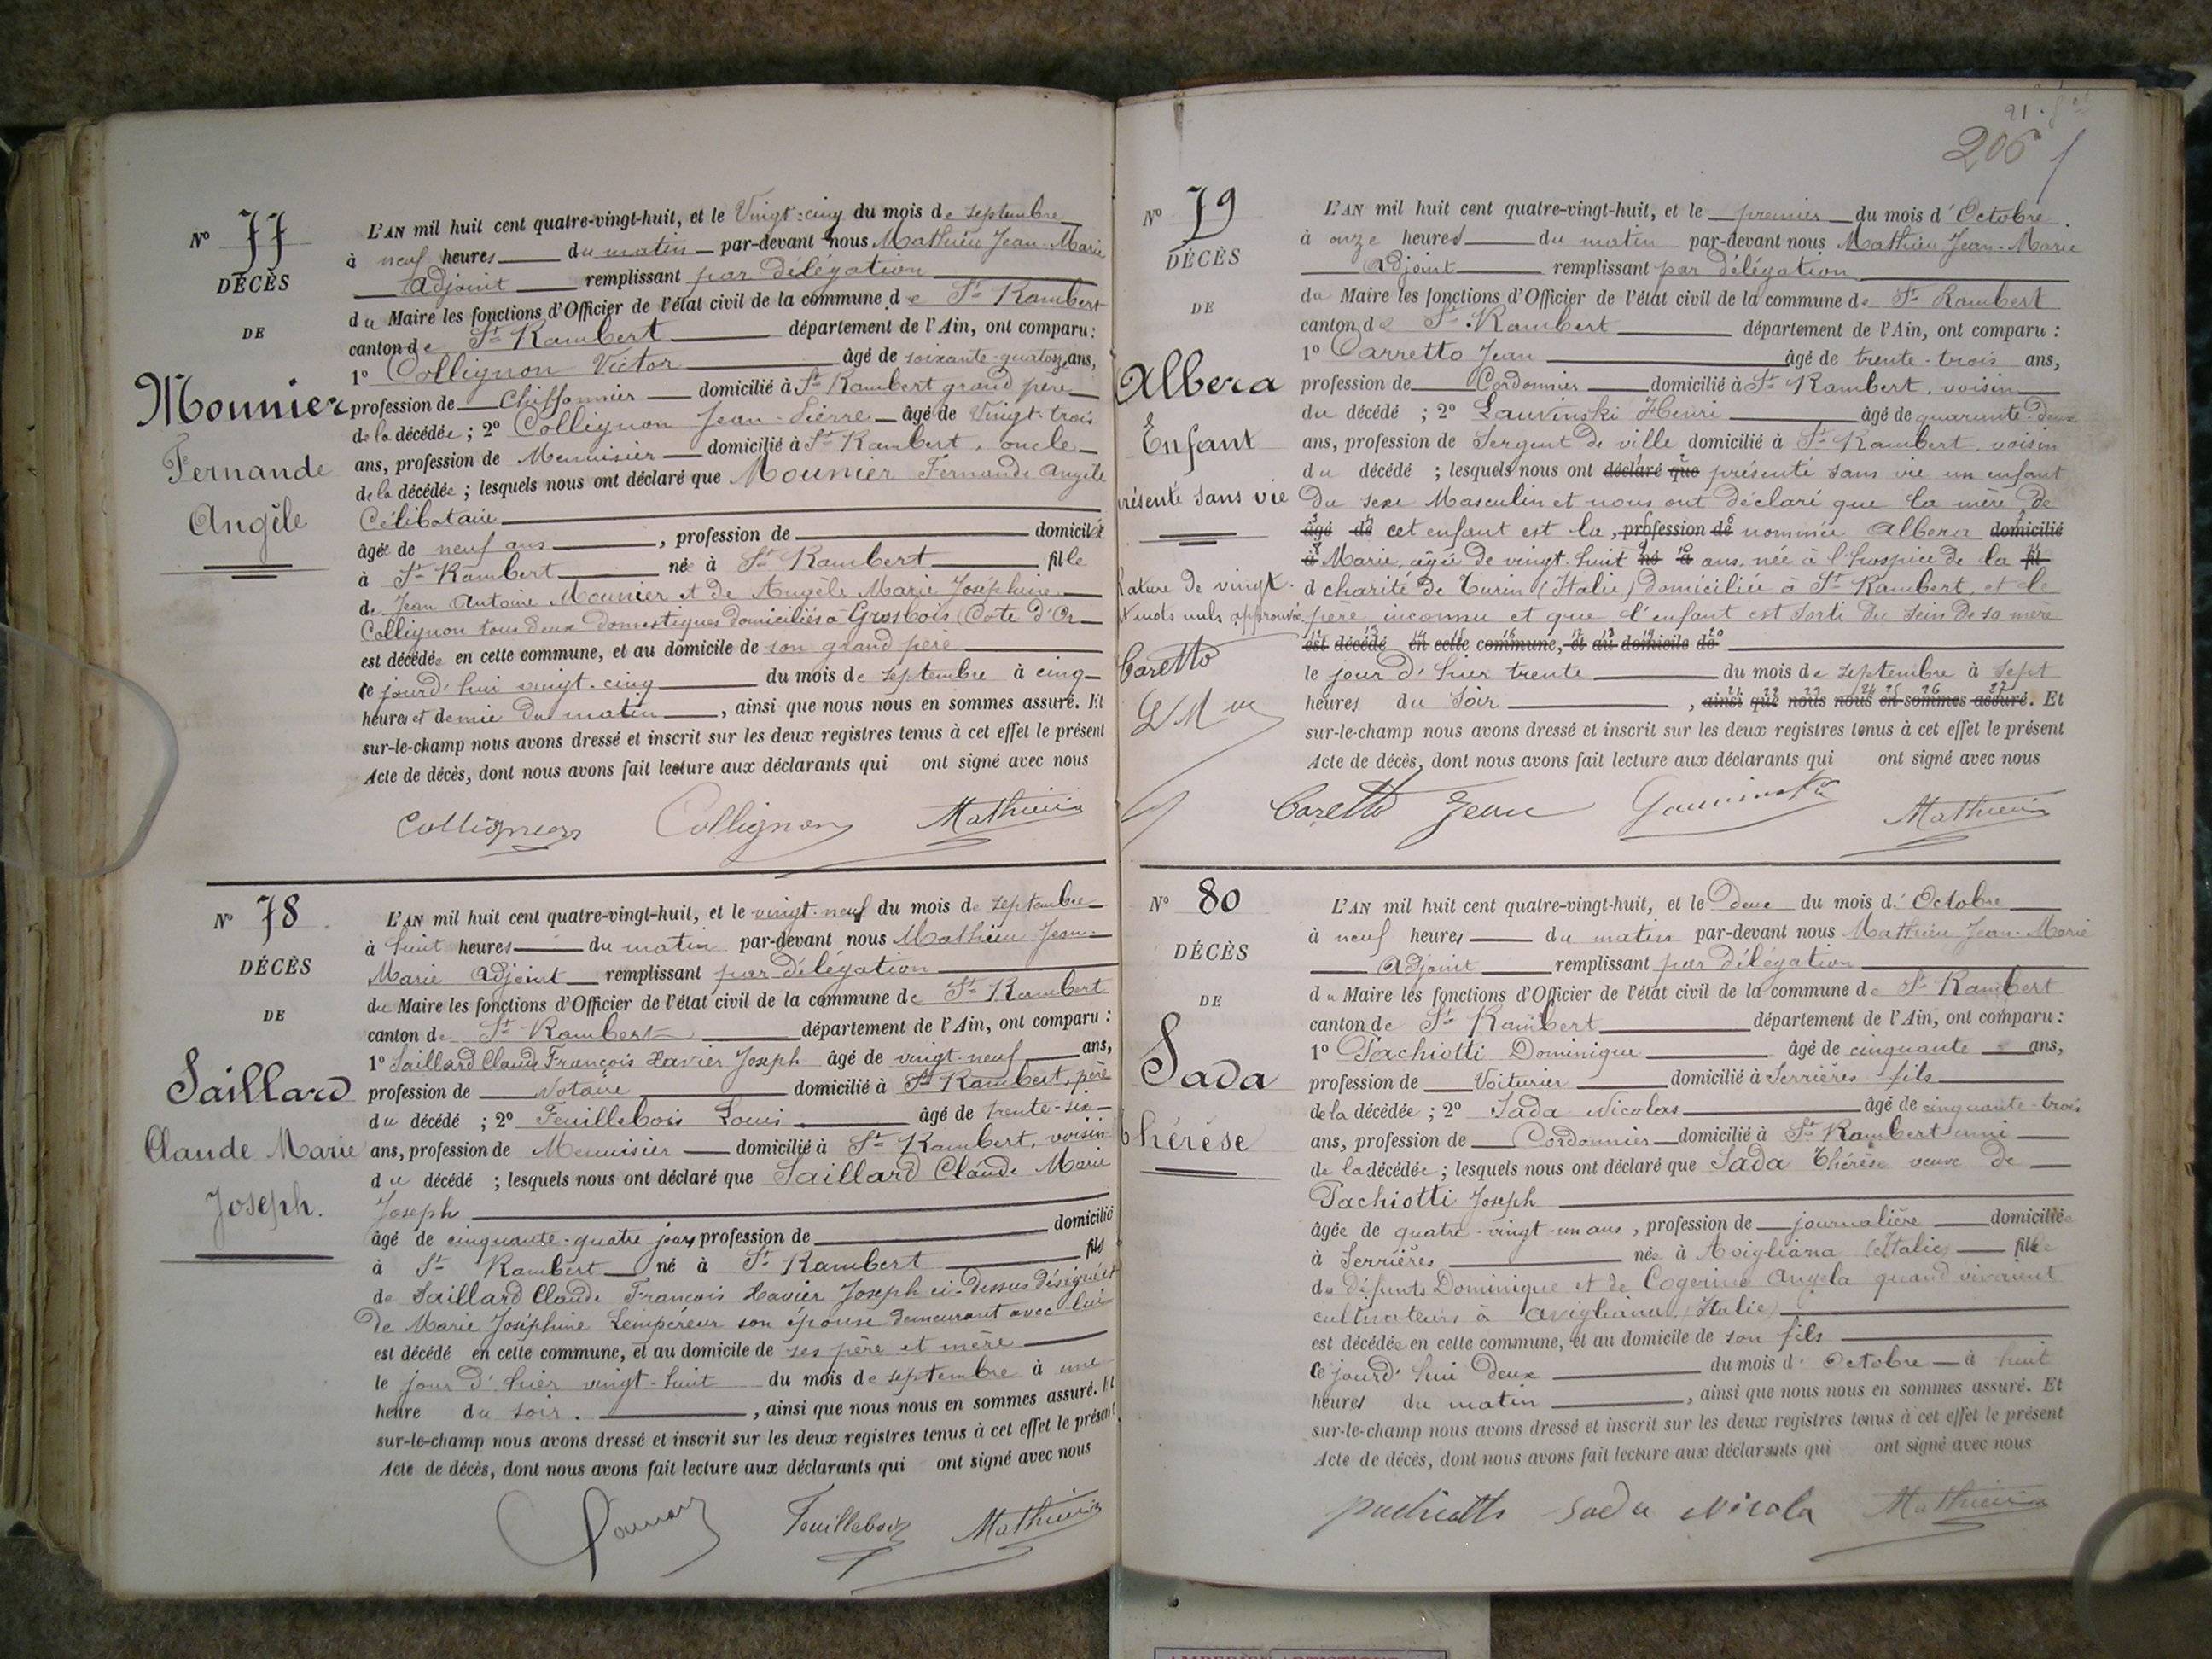 Nº 77
DÉCÈS
DE
Mounier
Fernande
Angèle
L'AN mil huit cent quatre-vingt-huit, et le Vingt-cinq du mois de septembre
à neuf heures du matin par-devant nous Mathieu Jean-Marie
Adjoint remplissant par délégation
du Maire les fonctions d'Officier de l'état civil de la commune de St Rambert
canton de St Rambert département de l'Ain, ont comparu :
1º Collignon Victor âgé de soixante-quatorze ans,
profession de Chiffonnier domicilié à St Rambert grand père
de la décédée ; 2º Collignon Jean-Pierre âgé de Vingt-trois
ans, profession de Menuisier domicilié à St Rambert, oncle
de la décédée ; lesquels nous ont déclaré que Mounier Fernande Angèle
Célibataire
âgée de neuf ans, profession de domicilié
à St Rambert née à St Rambert fille
de Jean Antoine Mounier et de Angèle Marie Joséphine
Collignon tous deux domestiques domiciliés à Grosbois (Cote d'Or
est décédée en cette commune, et au domicile de son grand père
ce jourd'hui vingt-cinq du mois de septembre à cinq
heures et demie du matin, ainsi que nous nous en sommes assuré. Et
sur-le-champ nous avons dressé et inscrit sur les deux registres tenus à cet effet le présent
Acte de décès, dont nous avons fait lecture aux déclarants qui ont signé avec nous
Collignon Collignon Mathieu
Nº 78
DÉCÈS
DE
Saillard
Claude Marie
Joseph.
L'AN mil huit cent quatre-vingt-huit, et le vingt-neuf du mois de septembre
à huit heures du matin par-devant nous Mathieu Jean-
Marie Adjoint remplissant par délégation
du Maire les fonctions d'Officier de l'état civil de la commune de St Rambert
canton de St Rambert département de l'Ain, ont comparu :
1º Saillard Claude François Xavier Joseph âgé de vingt-neuf ans,
profession de Notaire domicilié à St Rambert, père
du décédé ; 2º Feuillebois Louis âgé de trente-six
ans, profession de Menuisier domicilié à St Rambert, voisin
du décédé ; lesquels nous ont déclaré que Saillard Claude Marie
Joseph
âgé de cinquante-quatre jours profession de domicilié
à St Rambert né à St Rambert fils
de Saillard Claude François Xavier Joseph ci-dessus désigné et
de Marie Joséphine Lempereur son épouse demeurant avec lui
est décédé en cette commune, et au domicile de ses père et mère
le jour d'hier vingt-huit du mois de septembre à une
heure du soir, ainsi que nous nous en sommes assuré. Et
sur-le-champ nous avons dressé et inscrit sur les deux registres tenus à cet effet le présent
Acte de décès, dont nous avons fait lecture aux déclarants qui ont signé avec nous
Feuillebois Mathieu
206
Nº 79
DÉCÈS
DE
Albera
Enfant
présenté sans vie
Rature de vingt-
mots nuls approuvée
Caretto
L'AN mil huit cent quatre-vingt-huit, et le premier du mois d'Octobre.
à onze heures du matin par-devant nous Mathieu Jean-Marie
Adjoint remplissant par délégation
du Maire les fonctions d'Officier de l'état civil de la commune de St Rambert
canton de St Rambert département de l'Ain, ont comparu :
1º Carretto Jean âgé de trente-trois ans,
profession de Cordonnier domicilié à St Rambert, voisin
du décédé ; 2º Lauvinski Henri âgé de quarante-deux
ans, profession de Sergent de ville domicilié à St Rambert, voisin
du décédé ; lesquels nous ont déclaré que présenté sans vie un enfant
du sexe Masculin et nous ont déclaré que la mère de
âgé de cet enfant est la, profession de nommée Albera domicilié
à Marie, âgée de vingt-huit né à ans née à l'hospice de la fil
d charité de Turin (Italie) domiciliée à St Rambert, et le
père inconnu et que l'enfant est sorti du sein de sa mère
est décédé en cette commune, et au domicile de
le jour d'hier trente du mois de septembre à sept
heures du soir, ainsi que nous nous en sommes assuré. Et
sur-le-champ nous avons dressé et inscrit sur les deux registres tenus à cet effet le présent
Acte de décès, dont nous avons fait lecture aux déclarants qui ont signé avec nous
Caretto Jean Mathieu
Nº 80
DÉCÈS
DE
Sada
thérèse
L'AN mil huit cent quatre-vingt-huit, et le Deux du mois d'Octobre
à neuf heures du matin par-devant nous Mathieu Jean-Marie
Adjoint remplissant par délégation
du Maire les fonctions d'Officier de l'état civil de la commune de St Rambert
canton de St Rambert département de l'Ain, ont comparu :
1º Pachiotti Dominique âgé de cinquante ans,
profession de Voiturier domicilié à Serrières fils
de la décédée ; 2º Sada Nicolas âgé de cinquante-trois
ans, profession de Cordonnier domicilié à St Rambert ami
de la décédée ; lesquels nous ont déclaré que Sada Thérèse veuve de
Pachiotti Joseph
âgée de quatre-vingt-un ans, profession de journalière domiciliée
à Serrières née à Avigliana (Italie) fille
de défunts Dominique et de Cogerino Angela quand vivaient
cultivateurs à Avigliana (Italie)
est décédée en cette commune, et au domicile de son fils
ce jourd'hui deux du mois d'Octobre à huit
heures du matin, ainsi que nous nous en sommes assuré. Et
sur-le-champ nous avons dressé et inscrit sur les deux registres tenus à cet effet le présent
Acte de décès, dont nous avons fait lecture aux déclarants qui ont signé avec nous
Sada Nicola Mathieu